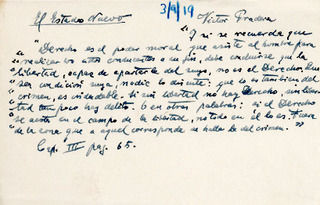 El Estado Nuevo 3/9/19 Victor Pradera
"Y si se recuerda que
"Derecho es el poder moral que asiste al hombre para
realizar los actos conducentes a su fin, debe concluirse que la
libertad, capaz de apartarle del suyo, no es el Derecho. Que
sea condición suya, nadie lo discute: que lo es también del
crimen, es indudable. Si sin libertad no hay Derecho, sin liber
tad tampoco hay delito. O en otras palabras: si el Derecho
se asienta en el campo de la libertad, no todo en él lo es. Fuera
de la zona que a aquel corresponde se halla la del crimen."
Cap. III pag. 65.